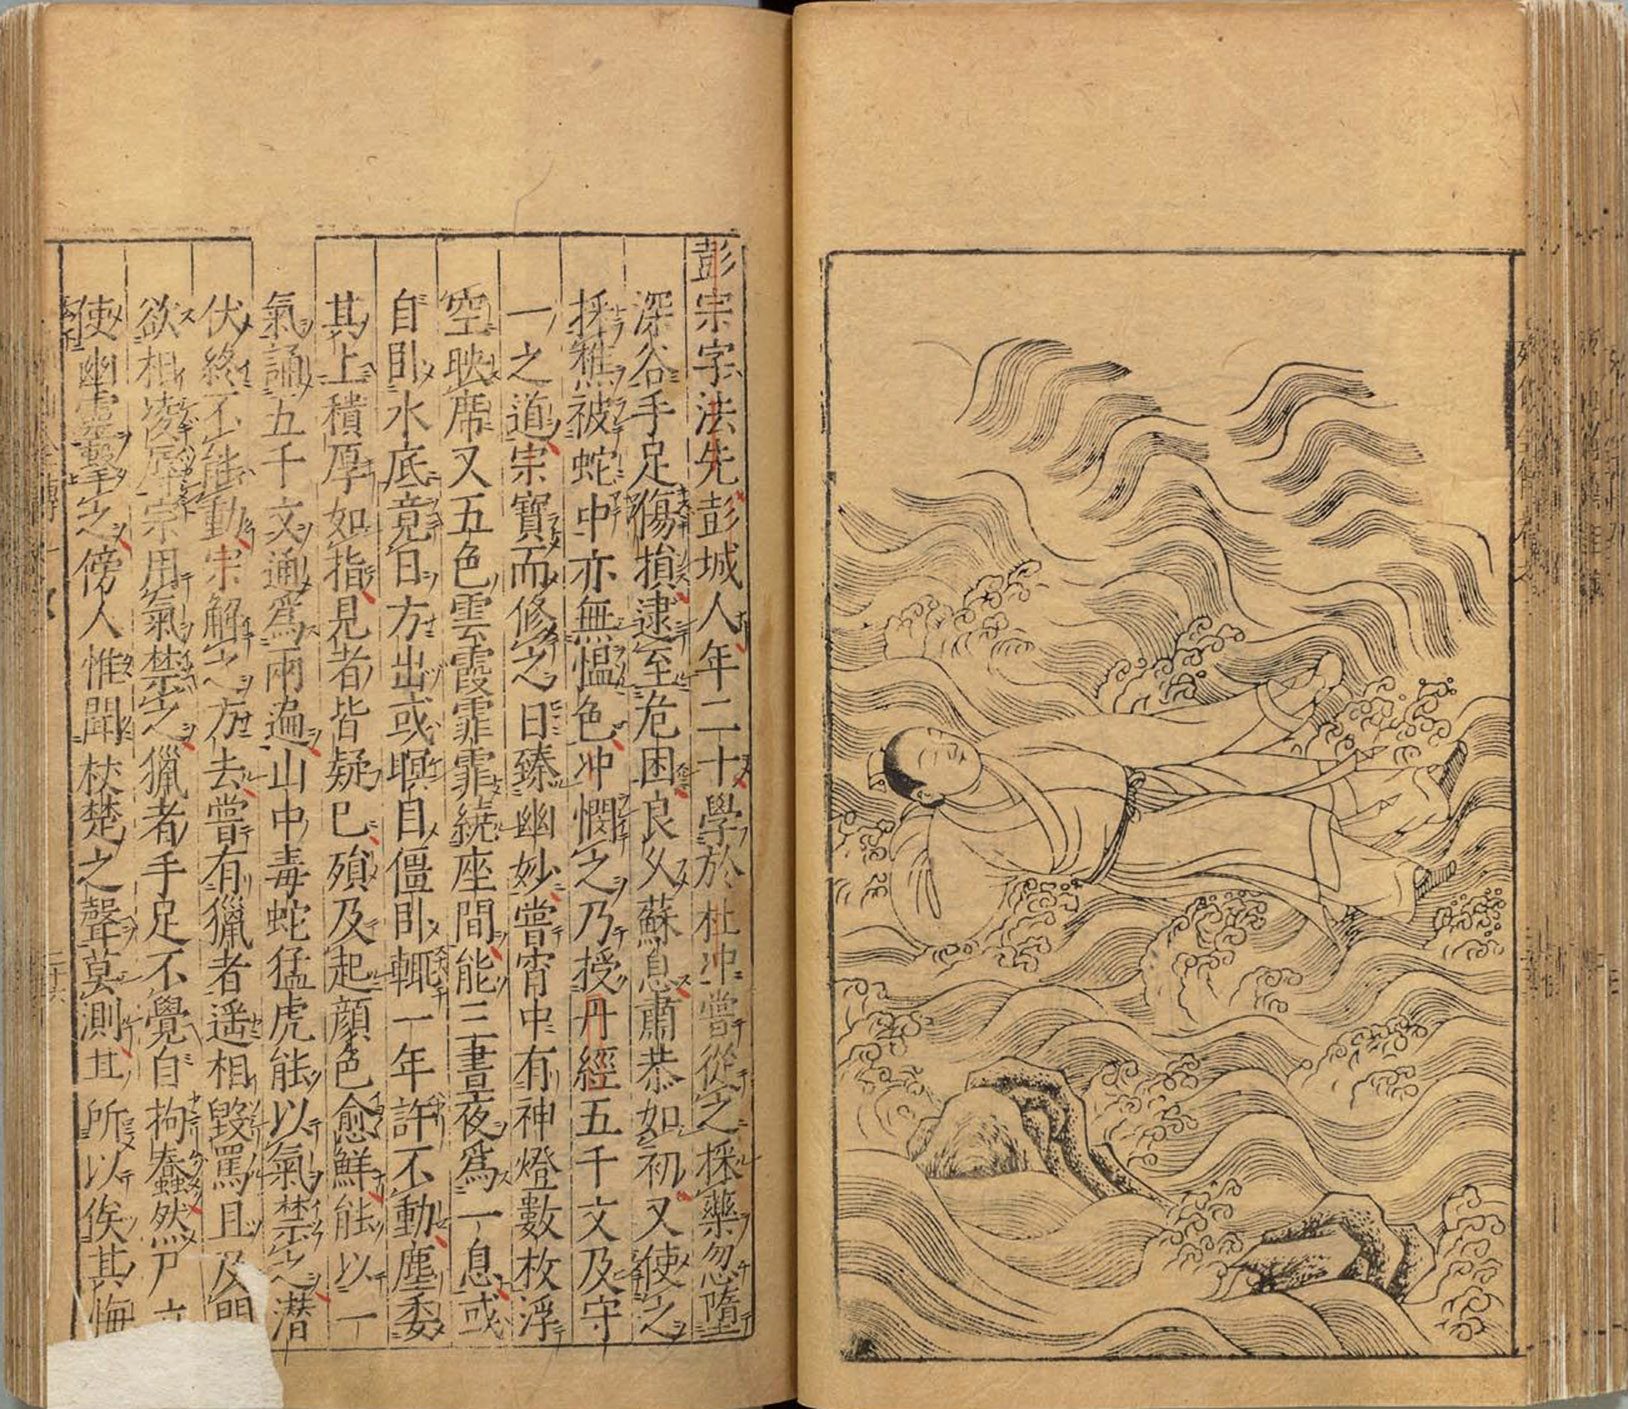 彭宗字法先彭城人年二十學於杜冲嘗從之採藥忽墮
深谷手足傷損逮至危困良久蘇息肅恭如初又使之
採樵被蛇中亦無慍色冲憫之乃授丹經五千文及守
一之道宗寶而修之日臻幽妙嘗宵中有神燈數枚浮
空映席又五色雲霞霏霏繞座間能三晝夜爲一息或
自臥水底竟日方出或瞑目僵臥輒一年許不動塵委
其上積厚如指見者皆疑已殞及起顏色愈鮮能以一
氣誦五千文通爲兩遍山中毒蛇猛虎能以氣禁之潛
伏終不能動宗解之方去嘗有獵者遥相毀罵且及門
欲相凌辱宗用氣禁之獵者手足不覺自拘蠢然尸立
使幽靈擊之傍人惟聞杖楚之聲莫測其所以俟其悔